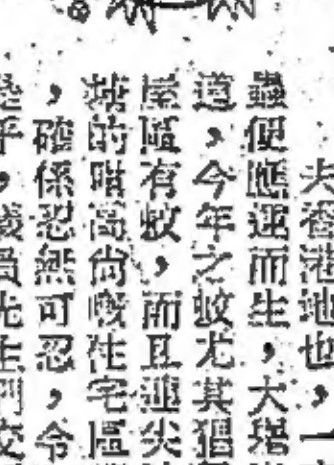 夫香港地也，一
蟲便應運而生，大增
道，今年之蚊尤其猖
屋區有蚊，而且連尖
咀的咁高尚嘅住宅區
，確係忍無可忍，令
乎，
先生們，交